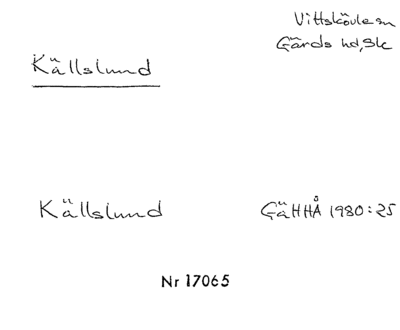 Vittskövle sn
Gärds hd, Sk
Källslund
Källslund GÄHHÅ 1980:25
Nr 17065